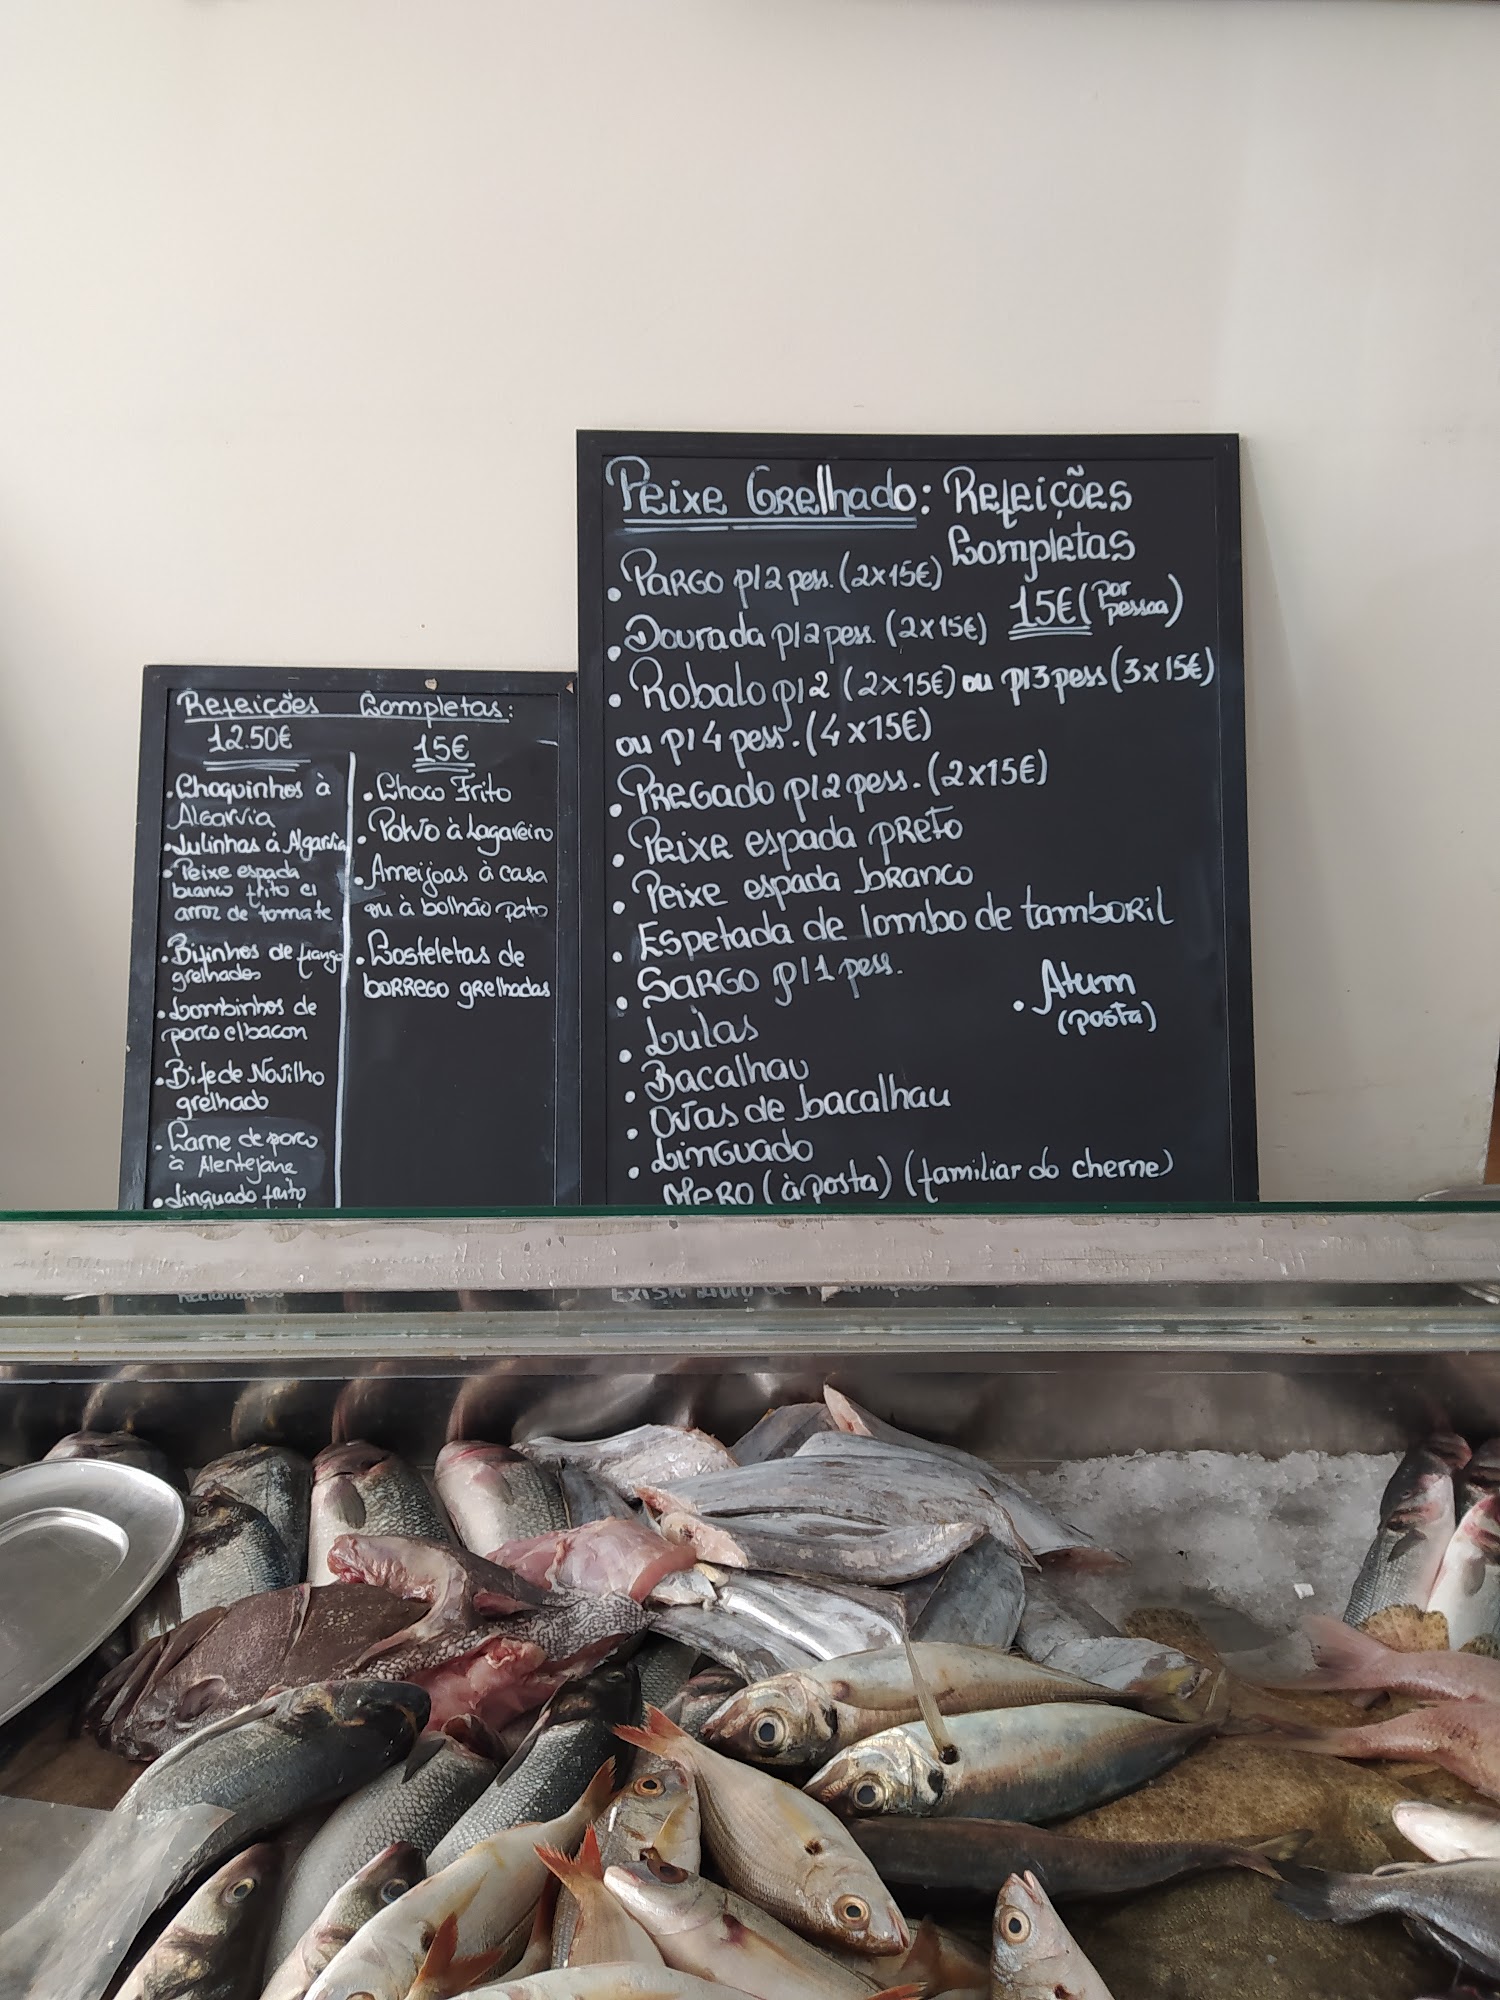 Refeições Completas:
12.50€
• Choquinhos à
Algarvia
• Lulinhas à Algarvia
• Peixe espada
branco frito c/
arroz de tomate
• Bifinhos de frango
grelhados
• Lombinhos de
porco c/bacon
• Bife de Novilho
grelhado
• Carne de porco
à Alentejana
• Linguado frito
15€
• Choco Frito
• Polvo à Lagareiro
• Ameijoas à casa
ou à bolhão pato
• Costeletas de
borrego grelhadas
Peixe Grelhado: Refeições
Completas
15€ (por
pessoa)
• Pargo p/2 pess. (2x15€)
• Dourada p/2 pess. (2x15€)
• Robalo p/2 (2x15€) ou p/3 pess (3x15€)
ou p/4 pess. (4x15€)
• Pregado p/2 pess. (2x15€)
• Peixe espada preto
• Peixe espada branco
• Espetada de lombo de tamboril
• Sargo p/1 pess.
• Lulas
• Bacalhau
• Ovas de bacalhau
• Linguado
Mero (à posta) (familiar do cherne)
• Atum
(posta)
Reclamações